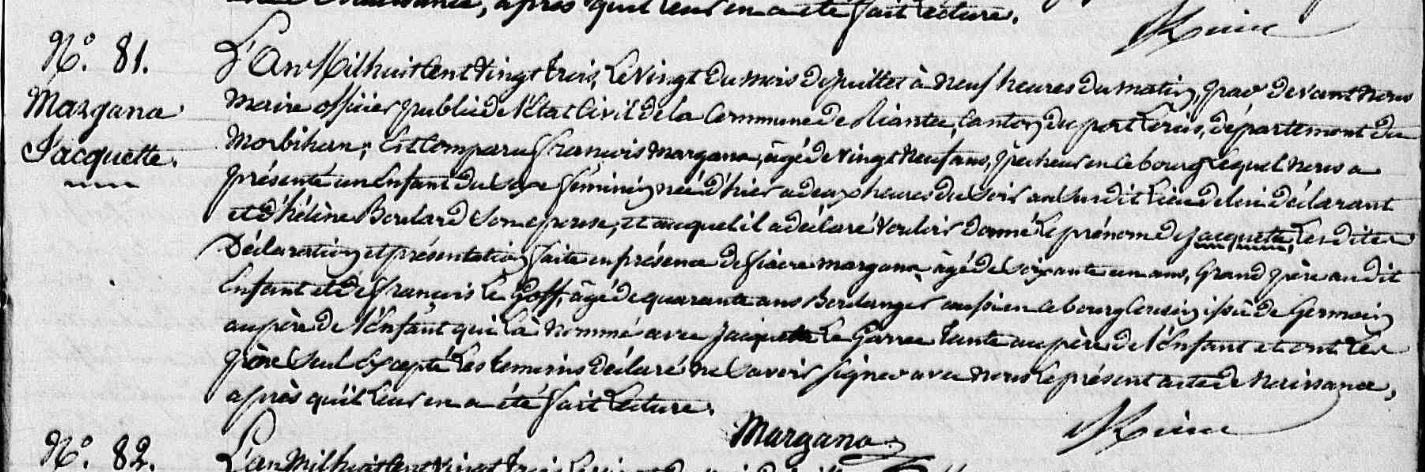 de Naissance, après qu'il leur en a été fait lecture.
N.° 81.
Margana
Jacquette.
L'An Mil huit Cent Vingt trois, Le Vingt du mois de juillet à neuf heures du matin, par devant nous
Maire officier public de l'Etat Civil de la Commune de Riantec, Canton du port Louis, département du
Morbihan, Est Comparu françois Margana, âgé de Vingt Neuf ans, pecheur en ce bourg Lequel nous a
présenté un Enfant du Sexe féminin née d'hier a deux heures du soir au Susdit Lieu de lui déclarant
et d'hélène Boulard Son epouse, et auquel il a déclaré Vouloir donné le prénom de jacquette, Les dites
Déclaration et présentation faite en présence de fiacre margana, âgé de Soixante un ans, Grand père au dit
Enfant et de françois Le Goff, âgé de quarante ans Boulanger aussi en ce bourg Cousin issu de Germain
au père de l'Enfant qui l'a nommé avec jacquette Le Garrec tante au père de l'Enfant et ont Les
père Seul Excepté Les temoins déclaré ne Savoir signer avec nous Le présent acte de Naissance,
après qu'il Leur en a été fait Lecture.
Margana
N.° 82.
L'an Mil huit Cent Vingt trois